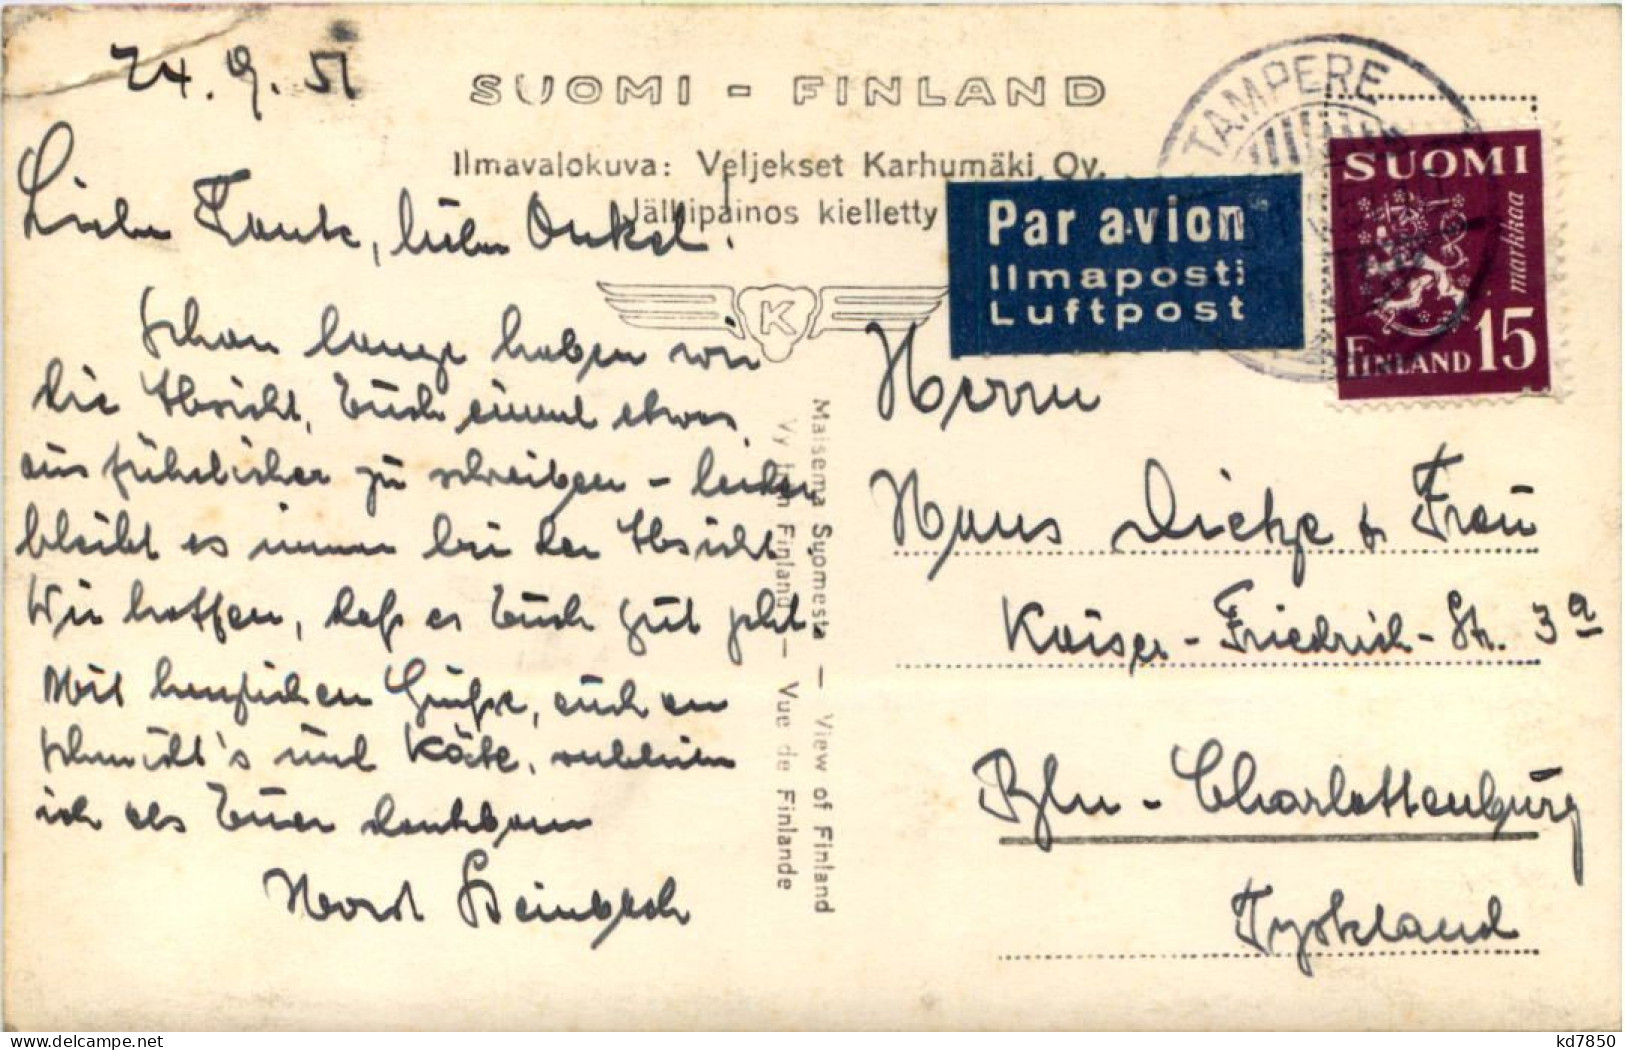 24.9.51
SUOMI - FINLAND
Ilmavalokuva: Veljekset Karhumäki Oy.
Jälkipainos kielletty
TAMPERE
Par avion
Ilmaposti
Luftpost
SUOMI
markkaa
FINLAND 15
K
Liebe Tante, lieber Onkel!
Schon lange haben wir
die Absicht, Euch einmal etwas
ausführlicher zu schreiben – leider
bleibt es immer bei der Absicht
Wir hoffen, daß es Euch gut geht.
Mit herzlichen Grüße, auch an
Schmidt's und Käte, verbleibe
ich als Euer dankbarer
Horst
Maisema Suomesta — View of Finland
Finland — Vue de Finlande
Herrn
Hans Dietze & Frau
Kaiser-Friedrich-Str. 3a
Bln - Charlottenburg
Tyskland
kd7850